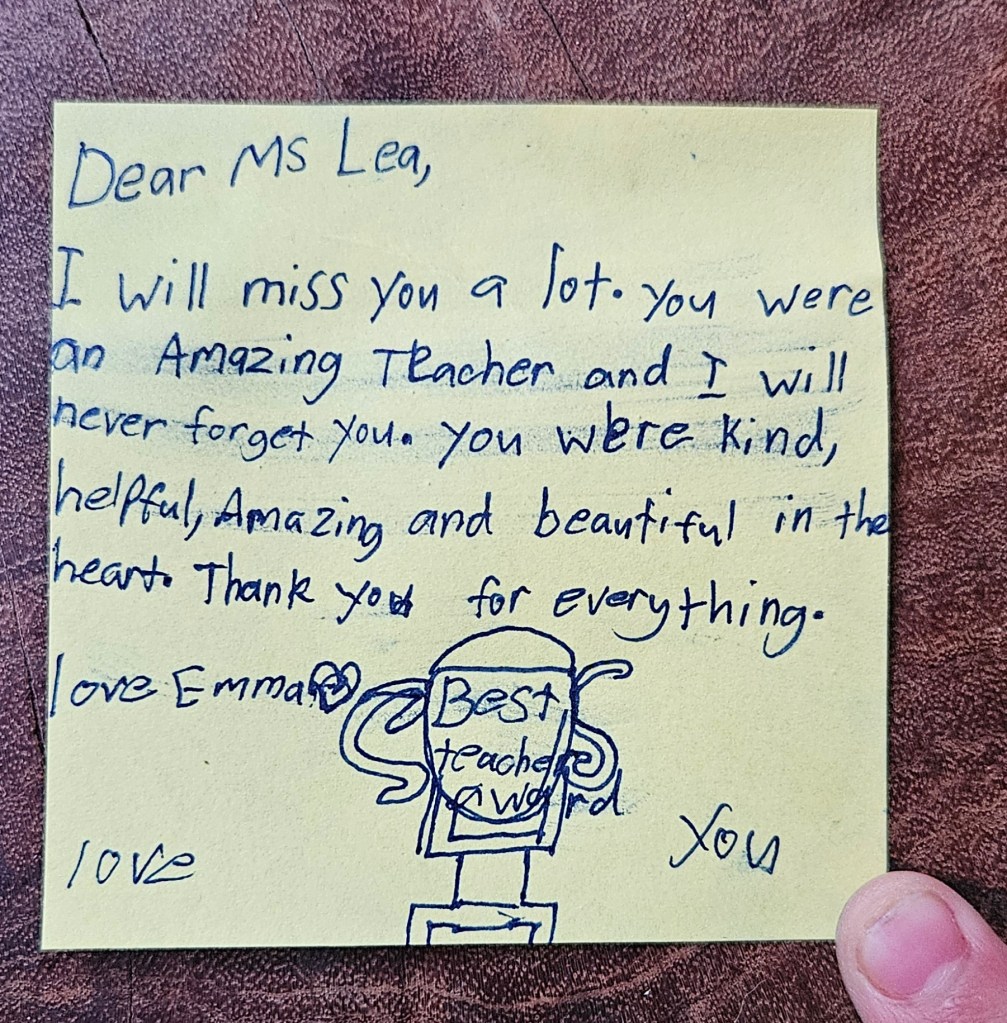 Dear Ms Lea,
I will miss you a lot. you were
an Amazing Teacher and I will
never forget you. you were kind,
helpful, Amazing and beautiful in the
heart. Thank you for everything.
love Emma
Best
teacher
award
love you